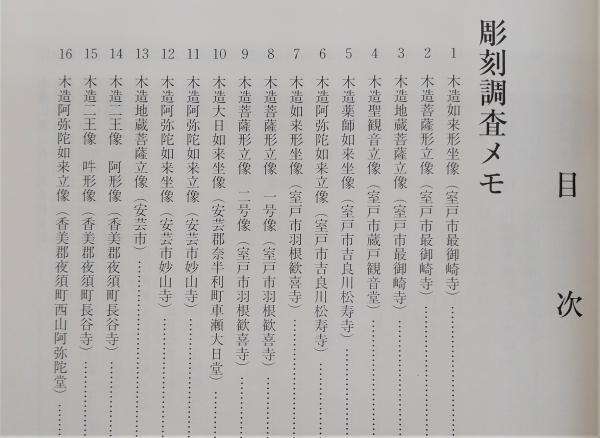 目 次
彫刻調査メモ
1 木造如来形坐像(室戸市最御崎寺)…………
2 木造菩薩形立像(室戸市最御崎寺)…………
3 木造地蔵菩薩立像(室戸市最御崎寺)…………
4 木造聖観音立像(室戸市蔵戸観音堂)…………
5 木造薬師如来坐像(室戸市吉良川松寿寺)…………
6 木造阿弥陀如来立像(室戸市吉良川松寿寺)…………
7 木造如来形坐像(室戸市羽根歓喜寺)…………
8 木造菩薩形立像 一号像(室戸市羽根歓喜寺)…………
9 木造菩薩形立像 二号像(室戸市羽根歓喜寺)…………
10 木造大日如来坐像(安芸郡奈半利町車瀬大日堂)…………
11 木造阿弥陀如来立像(安芸市妙山寺)…………
12 木造阿弥陀如来坐像(安芸市妙山寺)…………
13 木造地蔵菩薩立像(安芸市)…………
14 木造二王像 阿形像(香美郡夜須町長谷寺)…………
15 木造二王像 吽形像(香美郡夜須町長谷寺)…………
16 木造阿弥陀如来立像(香美郡夜須町西山阿弥陀堂)…………